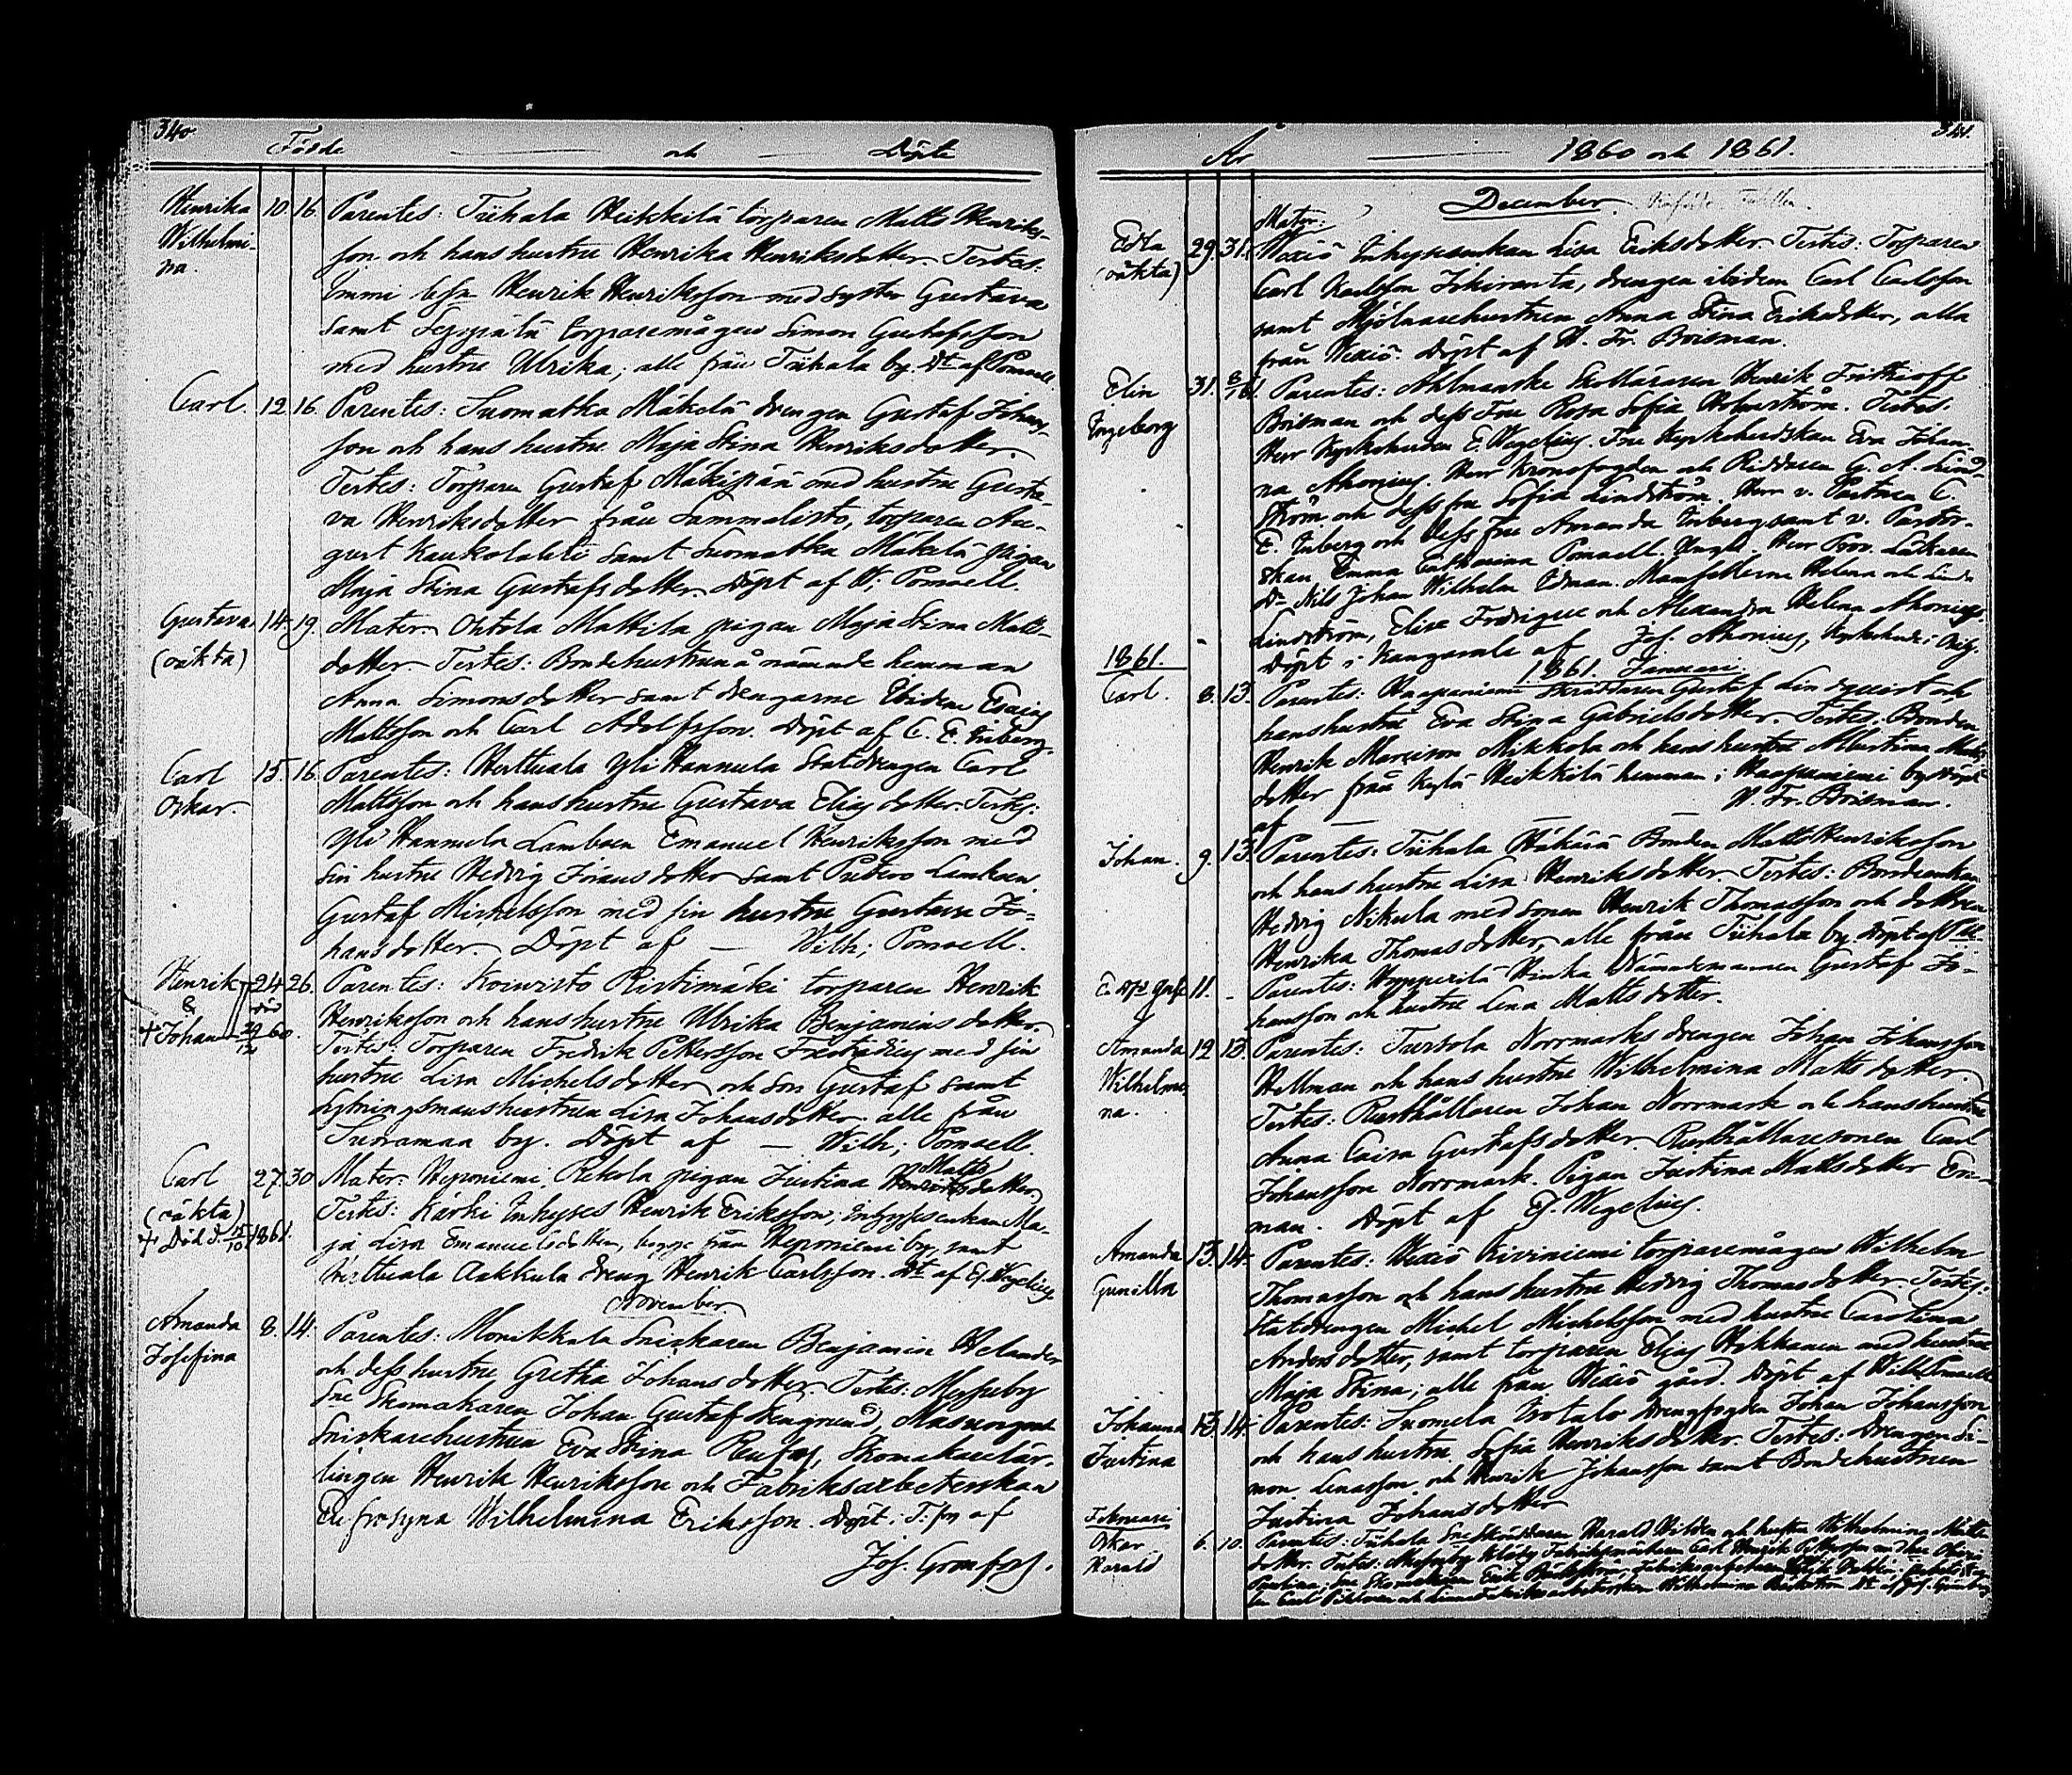 340.
Födde och Döpte
Henrika 10. 16. Parentes: Tiihala Heikkilä torparen Matts Henriks-
Wilhelmi- son och hans hustru Henrika Henriksdotter. Testes:
na. Immi Henrik Henriksson med syster Gustava
samt torparemågen Simon Gustafsson
med hustru Ulrika, alle från Tiihala by. Dt af Pomoell.
Carl. 12. 16. Parentes: Suomatka Mäkelä drengen Gustaf Johans-
son och hans hustru Maja Stina Henriksdotter.
Testes: Torparen Gustaf Mäkipää med hustru Gusta-
va Henriksdotter från Sammalisto, torparen Au-
gust Kaukolahti samt Suomatka Mäkelä pigan
Maja Stina Gustafsdotter. Döpt af W. Pomoell.
Gustava 14. 19. Mater: Ohtola Mattila pigan Maja Stina Matts-
(oäkta) dotter. Testes: Bondehustrun å nämnde hemman
Anna Simonsdotter samt drengarne Ibidem Esaias
Mattsson och Carl Adolfsson. Döpt af C. E. Inberg.
Carl 15. 16. Parentes: Herttuala Yli Hannula Statdrengen Carl
Oskar. Mattsson och hans hustru Gustava Eliasdotter. Testes:
Yli Hannula Lamboen Emanuel Henriksson med
sin hustru Hedvig Johansdotter samt Lamboen
Gustaf Michelsson med sin hustru Gustava Jo-
hansdotter. Döpt af — Wilh; Pomoell.
Henrik 24. 26. Parentes: Koivisto Ristimäki torparen Henrik
& död Henriksson och hans hustru Ulrika Benjaminsdotter.
+ Johan 29/12 60. Testes: Torparen Fredrik Pettersson med sin
hustru Lisa Michelsdotter och son Gustaf samt
Sytningsmanshustrun Lisa Johansdotter alle från
Suoramaa by. Döpt af — Wilh; Pomoell.
Carl 27. 30 Mater: Weponiemi, Rekola pigan Justina Matts dotter.
(oäkta) Testes: Kärki Inhyses Henrik Eriksson, Inhysesenkan Ma-
+ Död d. 15/10 1861. ja Lisa Emanuelsdotter, begge från Weponiemi by, samt
Herttuala Aakkula dreng Henrik Carlsson. Dt af Ej. Wegelius
November
Amanda 8. 14. Parentes: Monikkala Snickaren Benjamin Helander
Josefina och dess hustru Gretha Johansdotter. Testes: Messuby
Sne Skomakaren Johan Gustaf Stengrund,
Snickarehustrun Eva Stina Skomakarelär-
lingen Henrik Henriksson och Fabriksarbeterskan
Eufrosyna Wilhelmina Eriksson. Döpt i T:fors af
Jos. Grönfors.
341.
År 1860 och 1861.
December.
Mater:
Edla 29. 31. Wexiö Inhysesenkan Lisa Eriksdotter. Testes: Torparen
(oäkta) Carl Karlsson drengen ibidem Carl Carlsson
samt Mjölnarehustrun Anna Stina Eriksdotter, alla
från Wexiö. Döpt af H. Fr. Boisman.
Elin 31. 8/1 61. Parentes: Ahlmanske Skolläraren Henrik Frithioff
Ingeborg Boisman och dess Fru Rosa Sofia Holmström. Testes:
Herr Kyrkoherden E. Wegelius, Fru Kyrkoherdskan Eva Johan-
na Ahonius, Herr Kronofogden och Riddaren G. A. Lind-
ström och dess fru Sofia Lindström, Herr v. Pastorn C.
E. Inberg och dess Fru Amanda Inberg samt v. Pastor-
skan Emma Catharina Pomoell. Herr Prov. Läkaren
Dr Nils Johan Wilhelm Edman. Mamsellerne Helena och
Lindström, Elise Frodigue och Alexandra Helena Ahonius.
Döpt i Kangasala af Jos. Ahonius, Kyrkoherde i
1861. 1861. Januari
Carl. 8. 13. Parentes: Haapaniemi Skräddaren Gustaf Lindqvist och
hans hustru Eva Stina Gabrielsdotter. Testes: Bonden
Henrik Mattsson Mikkola och hans hustru Albertina Matts-
dotter från Kylä Heikkilä hemman i Haapaniemi by. Döpt
af — — H. Fr. Boisman.
Johan. 9. 13. Parentes: Tiihala Bonden Matts Henriksson
och hans hustru Lisa Henriksdotter. Testes: Bondeenkan
Hedvig Nikula med sonen Henrik Thomasson och dottren
Henrika Thomasdotter, alle från Tiihala by. Döpt af
11. - Parentes: Nämndemannen Gustaf Jo-
hansson och hustru Lena Mattsdotter.
Amanda 12 13. Parentes: Tursola Norrmarks drengen Johan Johansson
Wilhelmi- Hellman och hans hustru Wilhelmina Mattsdotter.
na. Testes: Rusthållaren Johan Norrmark och hans hustru
Anna Caisa Gustafsdotter. Rusthållaresonen Carl
Johansson Norrmark. Pigan Justina Mattsdotter En-
man. Döpt af Ej. Wegelius.
Amanda 13. 14. Parentes: Wexiö Kiviniemi torparemågen Wilhelm
Gunilla Thomasson och hans hustru Hedvig Thomasdotter. Testes:
Statdrengen Michel Michelsson med hustru Carolina
Andersdotter, samt torparen Elias med hustru
Maja Stina; alle från Wexiö gård. Döpt af Wilh. Pomoell.
Johanna 13. 14. Parentes: Suomela Isotalo drengfogden Johan Johansson
Justina och hans hustru Sofia Henriksdotter. Testes: Drengen Si-
mon Linasson och Henrik Johansson samt Bondehustrun
Justina Johansdotter
Februari
Oskar 6. 10. Parentes: Tiihala Sneskräddaren Harald Widen och hustru Wilhelmina Matts-
Harald dotter. Testes: Messuby Carl Henrik Pettersson med